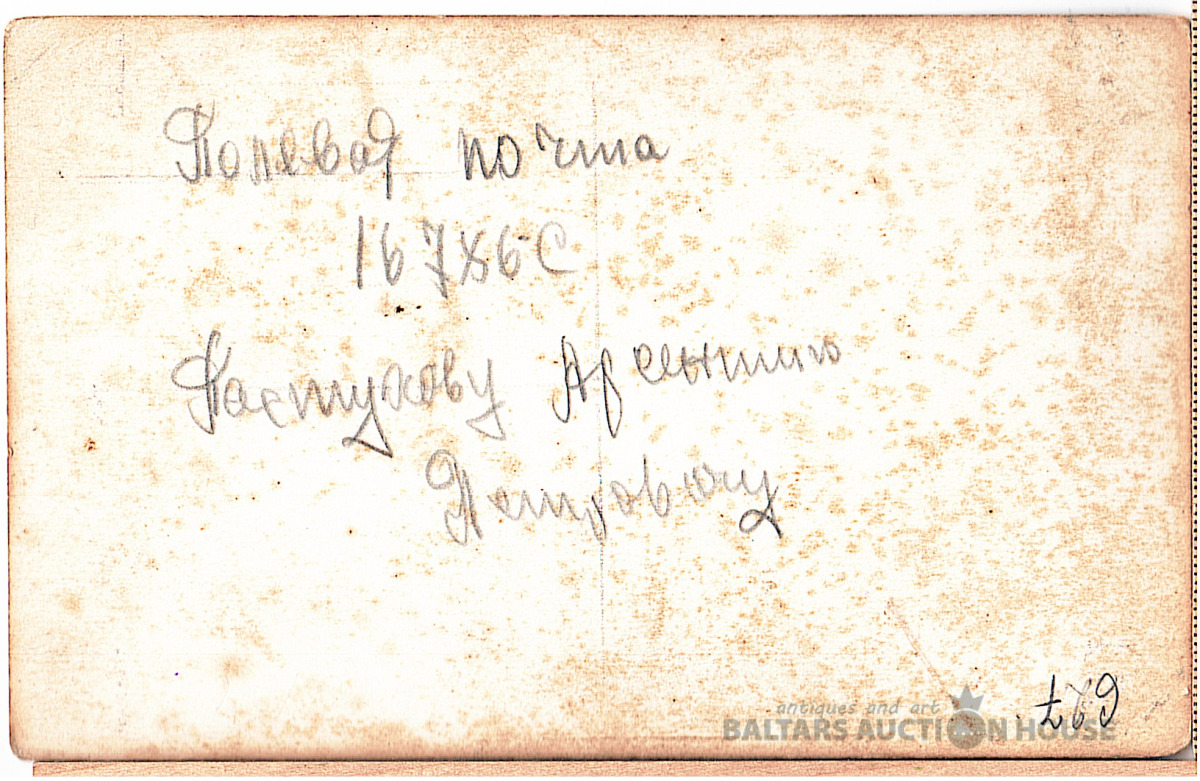 Полевая почта
16786 С
Пастухову Арсентию
Петровичу
antiques and art
BALTARS AUCTION HOUSE